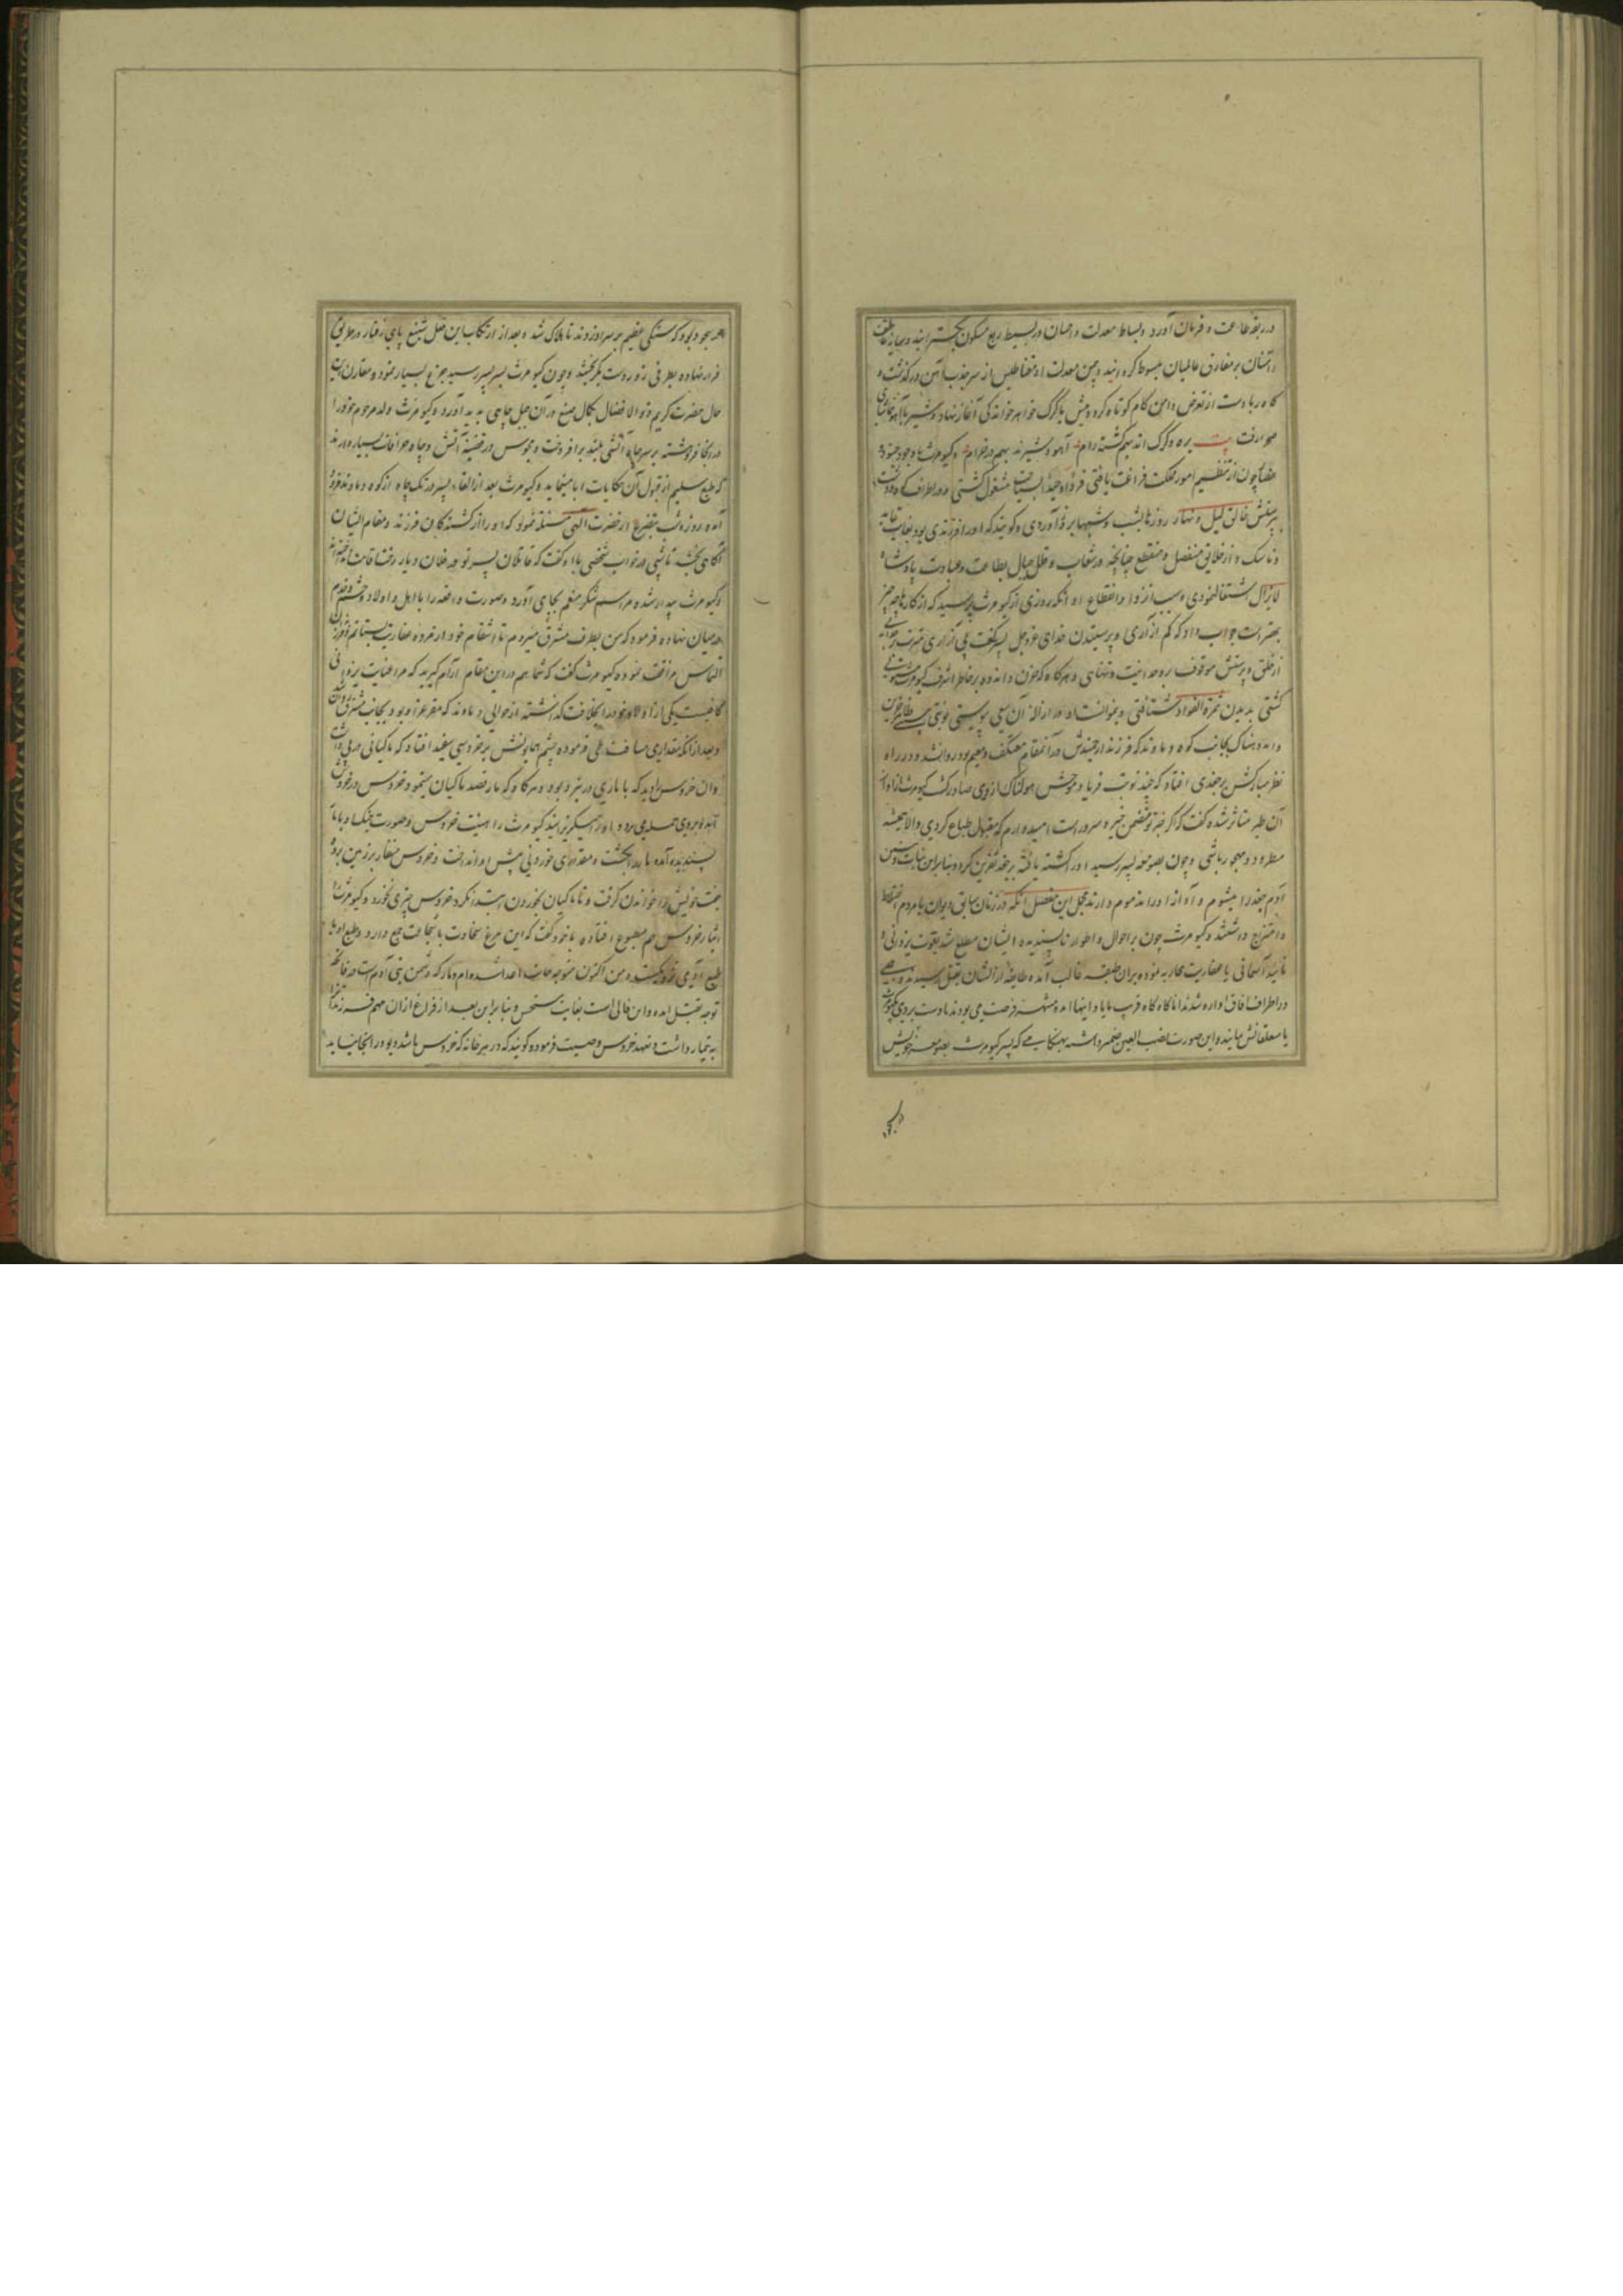 در ربقه طاعت و فرمان آورد و بساط معدلت و احسان در بسیط ربع مسکون بگسترانید و سایه عاطفت
رافتشان بر مفارق عالمیان مبسوط گردانید و بیمن معدلت او مغناطیس از سر جذب آهن درگذشت و
کاه ربا دست از تعرض دامن کاه کوتاه کرد و میش با گرگ خواهرخواندگی آغاز نهاد و شیر با آهو
موارفت بیت بره و گرگ اند بهم گشته رام آهو و شیرند بهم در خرام و کیومرث با وجود جنود
چون از تنظیم امور مملکت فراغت یافتی فردا وحیدا بسیاحت مشغول گشتی و در اطراف کوه و دشت
بپرستش خالق لیل و نهار روزها بشب و شبها بروز آوردی و گویند که او را فرزندی بود بغایت عابد
و ناسک و از خلایق منفصل و منقطع چنانچه در شعاب و قلل جبال بطاعت و عبادت پادشاه
لایزال اشتغال نمودی و سبب انزوا و انقطاع او آنکه روزی از کیومرث پرسید که از کارها چه چیز
بهتر است جواب داد که کم آزاری و پرستیدن خدای عزوجل پسر گفت بی آزاری
از خلق و پرستش موقوف بوحدانیت و تنهایی و هر گاه که حزن و اندوه بر خاطر اشرف کیومرث مستولی
گشتی بدیدن ثمرة الفواد شتافتی و بموانست او در ازاله آن سعی پیوستی نوبتی
و اندوهناک بجانب کوه دماوند که فرزند ارجمندش در آن مقام معتکف و مقیم بود روان شد و در راه
نظر مبارکش بر جغدی افتاد که چند نوبت فریاد موحش هولناک از وی صادر گشت کیومرث از آواز
آن طیر متاثر شده گفت که اگر خبر تو متضمن خیر و سرور است امیدوارم که مقبول طباع گردی و الا همیشه
مطرود و مهجور باشی و چون بصومعه پسر رسید او را کشته یافته بر جغد نفرین کرد و بنابراین بنات و بنین
آدم جغد را میشوم و آواز او را مذموم دارند مجمل این مفصل آنکه در زمان سابق دیوان با مردم اختلاط
و امتزاج داشتند و کیومرث چون بر احوال و اطوار ناپسندیده ایشان مطلع شد بقوت یزدانی و
تائید آسمانی با عفاریت محاربه نموده بران طبقه غالب آمده طایفه از ایشان بقتل رسیدند و بعضی
در اطراف آفاق آواره شدند اما گاه گاه قریب بابادانیها آمده منتهز فرصت می بودند تا دست بردی بکیومرث
یا متعلقانش نمایند و این صورت نصب العین ضمیر داشته بهنگامی که پسر کیومرث بصومعه خویش
در سجود بود که سنگی عظیم بر سر او زدند تا هلاک شد و بعد از ارتکاب این فعل شنیع پای رفتار در طریق
فرار نهاده بطرفی دوردست بگریختند و چون کیومرث بسر پسر رسید جزع بسیار نمود و مقارن این
حال حضرت کریم ذو الافضال بکمال صنع در آن جبل چاهی پدید آورد و کیومرث ولد مرحوم خود را
در آنجا فروهشته بر سر چاه آتشی بلند برافروخت و مجوس در قضیه آتش و چاه خرافات بسیار دارند
که طبع سلیم از قبول آن حکایات ابا مینماید و کیومرث بعد از القاء پسر در تک چاه از کوه دماوند فرود
آمده روز و شب بتضرع از حضرت الهی مسئلت نمود که او را از کشندگان فرزند و مقام ایشان
آگاهی بخشد تا شبی در خواب شخصی با او گفت که قاتلان پسر تو در فلان دیار رخت اقامت انداخته اند
و کیومرث بیدار شده مراسم شکر منعم بجای آورد و صورت واقعه را با اهل و اولاد و حشم و خدم
در میان نهاده فرمود که من بطرف مشرق میروم تا انتقام خود از مرده عفاریت بستانم فرزندان
التماس مرافقت نموده کیومرث گفت که شما هم در این مقام آرام گیرید که مرا عنایت یزدانی
کافیست یکی از اولاد خود را بخلافت گذاشته از حوالی دماوند که مقر عز او بود بجانب مشرق روان شد
و بعد از آنکه مقداری مسافت طی فرمود چشم همایونش بر خروسی سفید افتاد که ماکیانی در پی داشت
و آن خروس را دید که با ماری در نبرد بود و هر گاه که مار قصد ماکیان مینمود خروس در خروش
آمده بر وی حمله می برد و او را میگریزانید کیومرث را هیئت خروس و صورت جنگ او با مار
پسندیده آمده مار را بکشت و مقداری خوردنی پیش او انداخت و خروس منقار بر زمین زده
جفت خویش را خواندن گرفت و تا ماکیان بخوردن ابتدا نکرد خروس چیزی نخورد و کیومرث را
ایثار خروس هم مطبوع افتاده با خود گفت که این مرغ سخاوت با شجاعت جمع دارد و طبع او با
طبع آدمی نزدیکست و من اکنون متوجه جانب اعدا شده ام و مار که دشمن بنی آدم است در فاتحه
توجه بقتل آمد و این فالی است بغایت مستحسن و بنا براین بعد از فراغ از آن مهم فرزندان را
به تیمار داشت و تعهد خروس وصیت فرمود و گویند که در هر خانه که خروس باشد دیو در آنجا نیاید